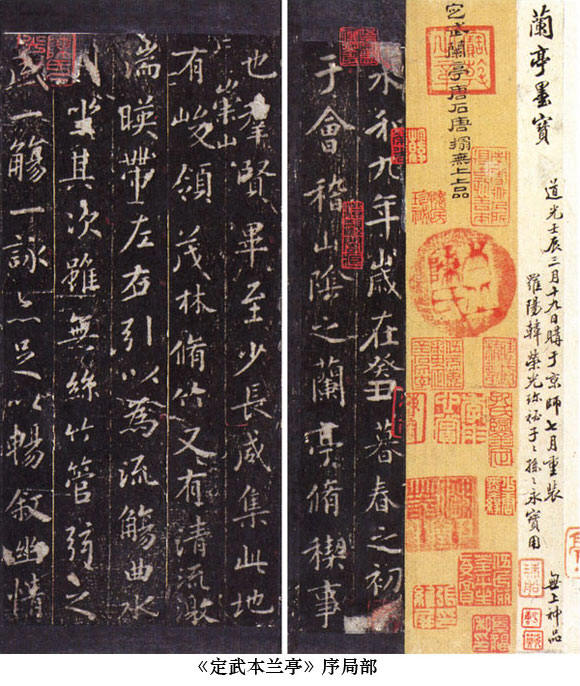 蘭亭墨寶
道光壬辰三月十九日購于京師七月重裝
羅陽韓榮光珍秘子〻孫〻永寶用
無上神品
定武蘭亭唐石唐搨無上上品
永和九年歲在癸丑暮春之初
于會稽山陰之蘭亭脩稧事
也羣賢畢至少長咸集此地
有崇山峻領茂林脩竹又有清流激
湍暎帶左右引以為流觴曲水
列坐其次雖無絲竹管弦之
盛一觴一詠亦足以暢叙幽情
《定武本兰亭》序局部